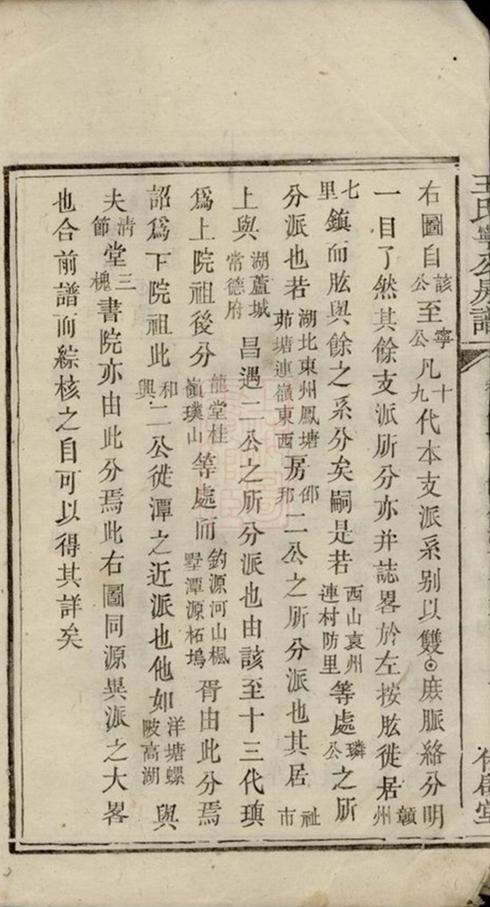 王氏寧公房譜
右圖自該公至寧公凡十九代本支派系别以雙⊙庶脈絡分明
一目了然其餘支派所分亦并誌畧於左按肱徙居贛州
七里鎮而肱與餘之系分矣嗣是若西山袁州連村防里等處璘公之所
分派也若湖北東州鳳塘茆塘連嶺東西房邟二公之所分派也其居祉市
上與湖蘆城常德府昌遇二公之所分派也由該至十三代瑱
爲上院祖後分龍堂桂嶺璞山等處而釣源河山楓墅潭源柘塢胥由此分焉
詔爲下院祖此和興二公徙潭之近派也他如洋塘螺陂高湖與
夫清節堂三槐書院亦由此分焉此右圖同源異派之大畧
也合前譜而綜核之自可以得其詳矣